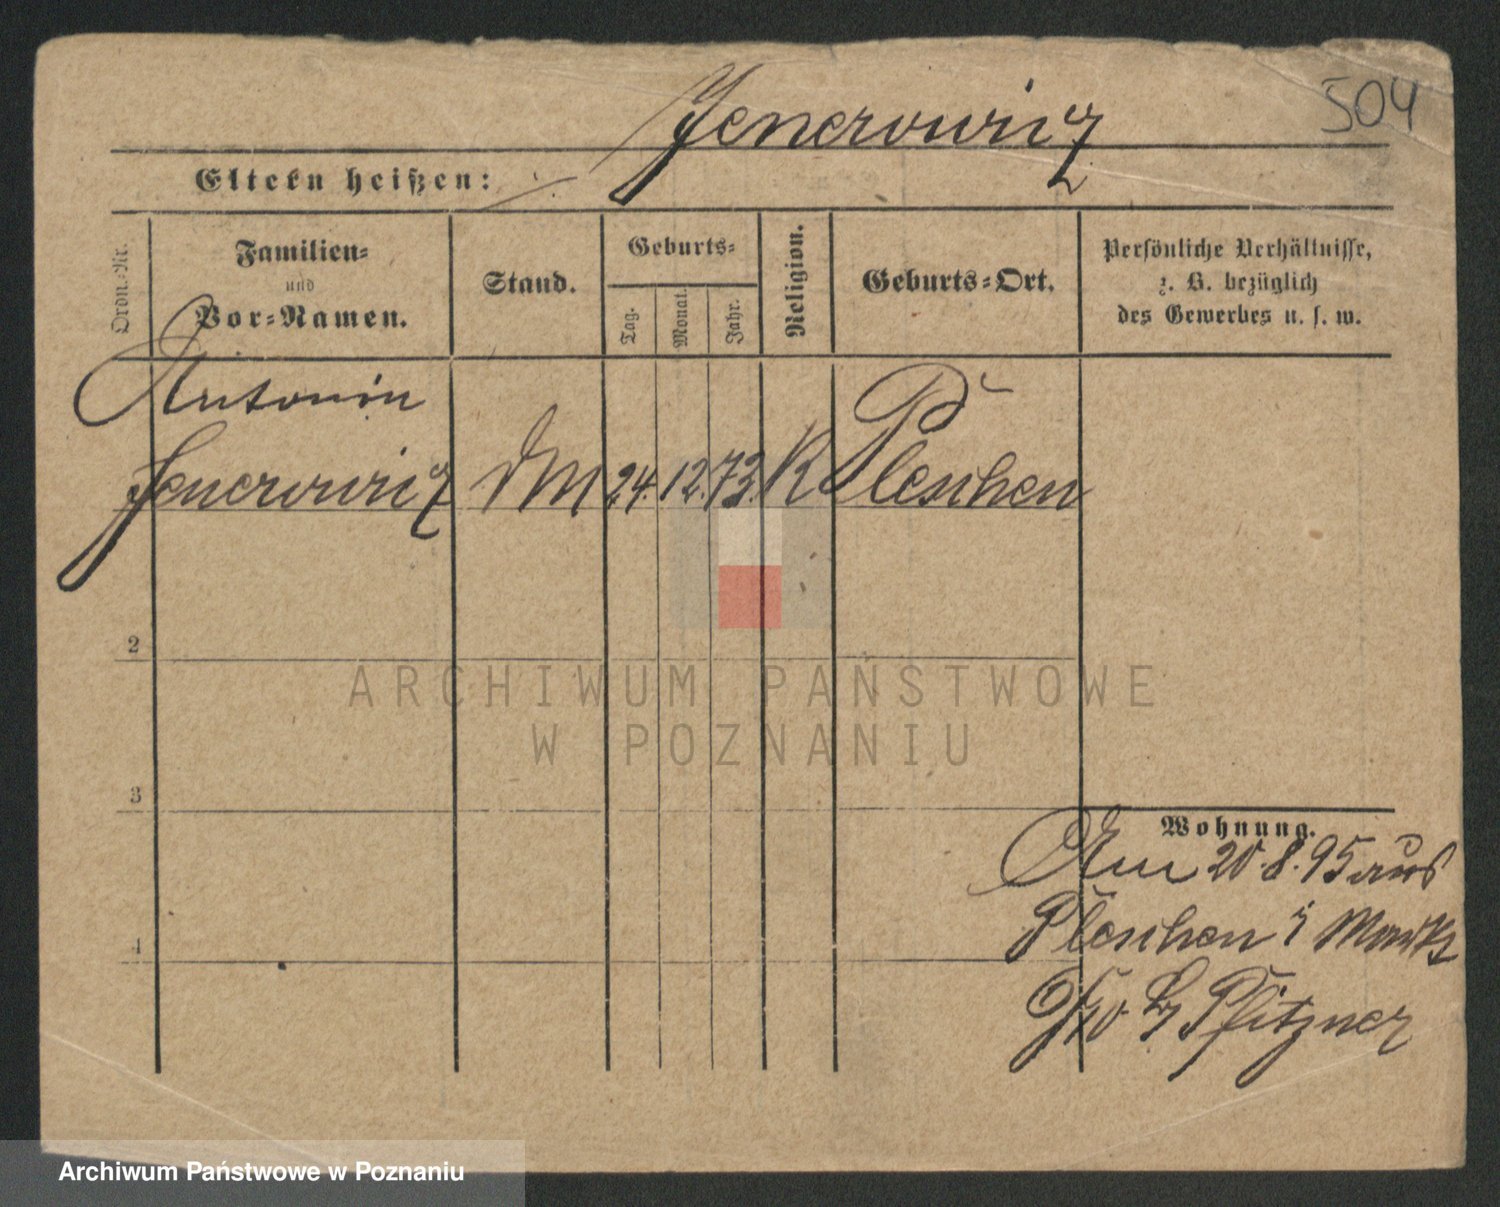 504
Jenerowicz
Eltern heißen:
Ordn.-Nr.
Familien-
und
Vor-Namen.
Stand.
Geburts-
Tag.
Monat.
Jahr.
Religion.
Geburts-Ort.
Persönliche Verhältnisse,
z. B. bezüglich
des Gewerbes u. s. w.
Antonin
Jenerowicz DM 24. 12. 73. K Pleschen
2
ARCHIWUM PAŃSTWOWE
W POZNANIU
3
Wohnung.
Am 20.8.95 aus
Pleschen
4
Pfitzner
Archiwum Państwowe w Poznaniu